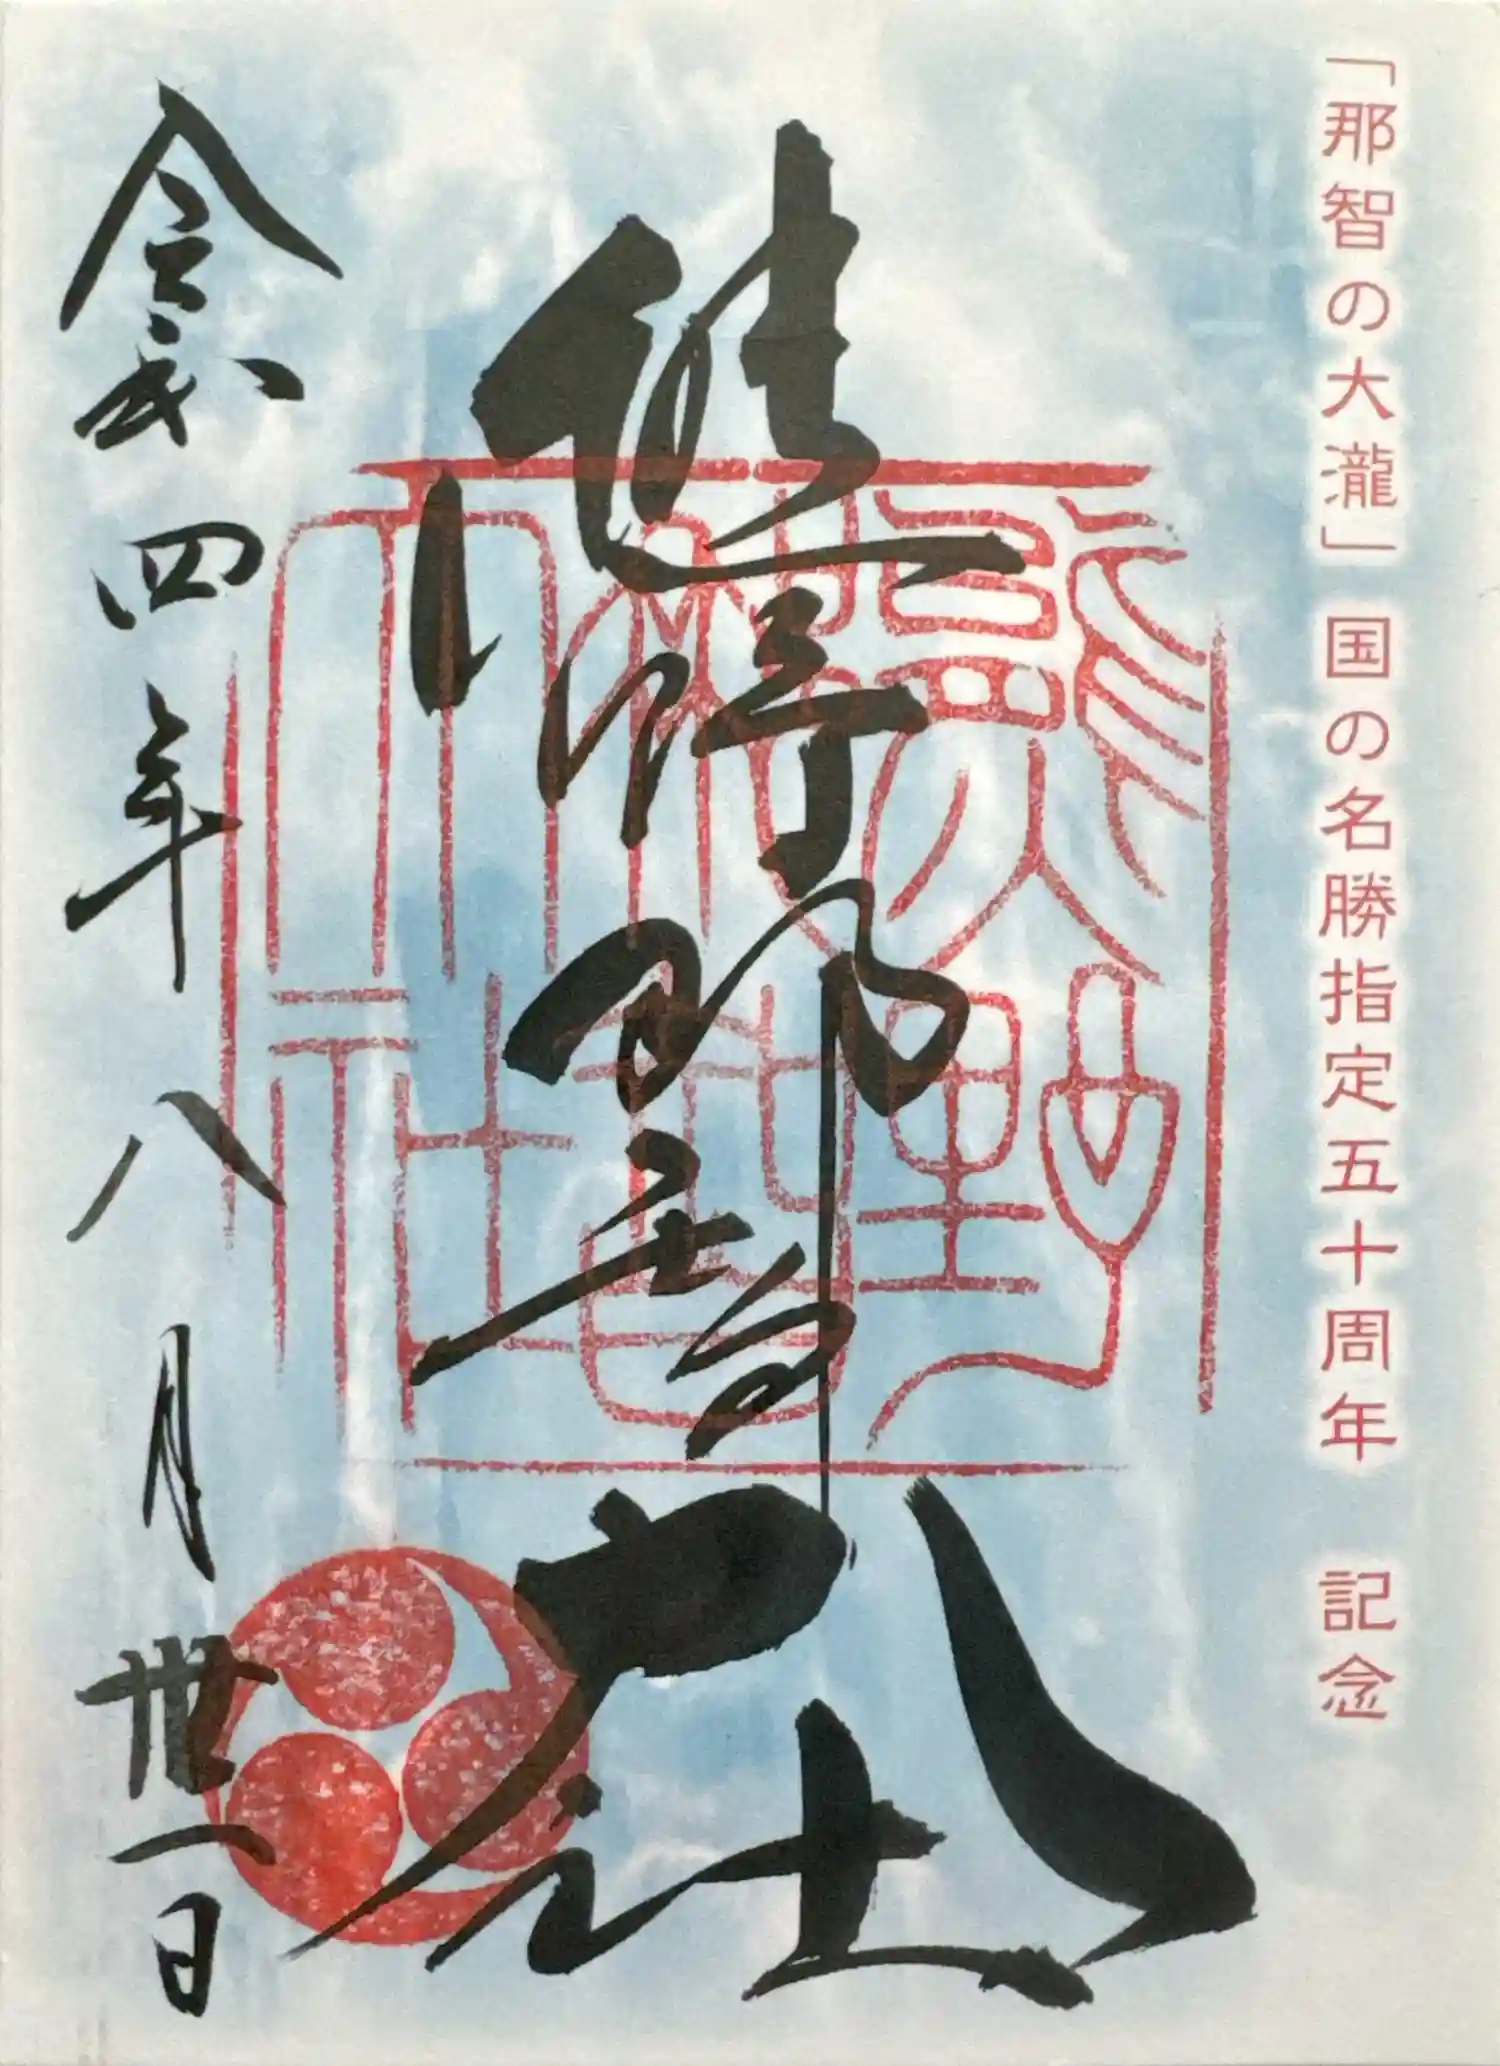 「那智の大瀧」国の名勝指定五十周年 記念
熊野那智大社
令和四年八月丗一日
熊野
那智
大社